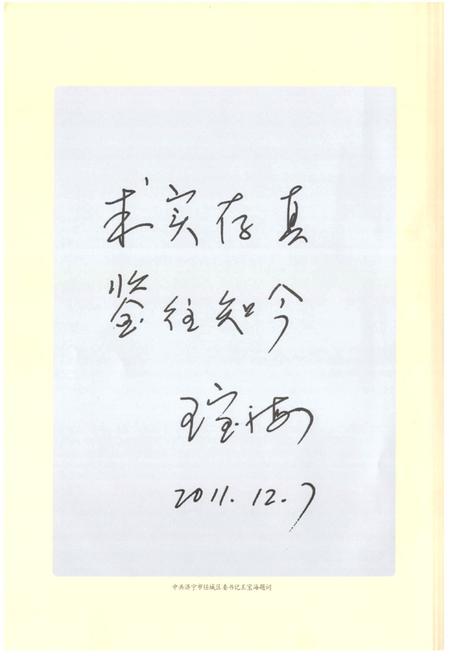 求实存真
鉴往知今
王宝海
2011.12.7
中共济宁市任城区委书记王宝海题词